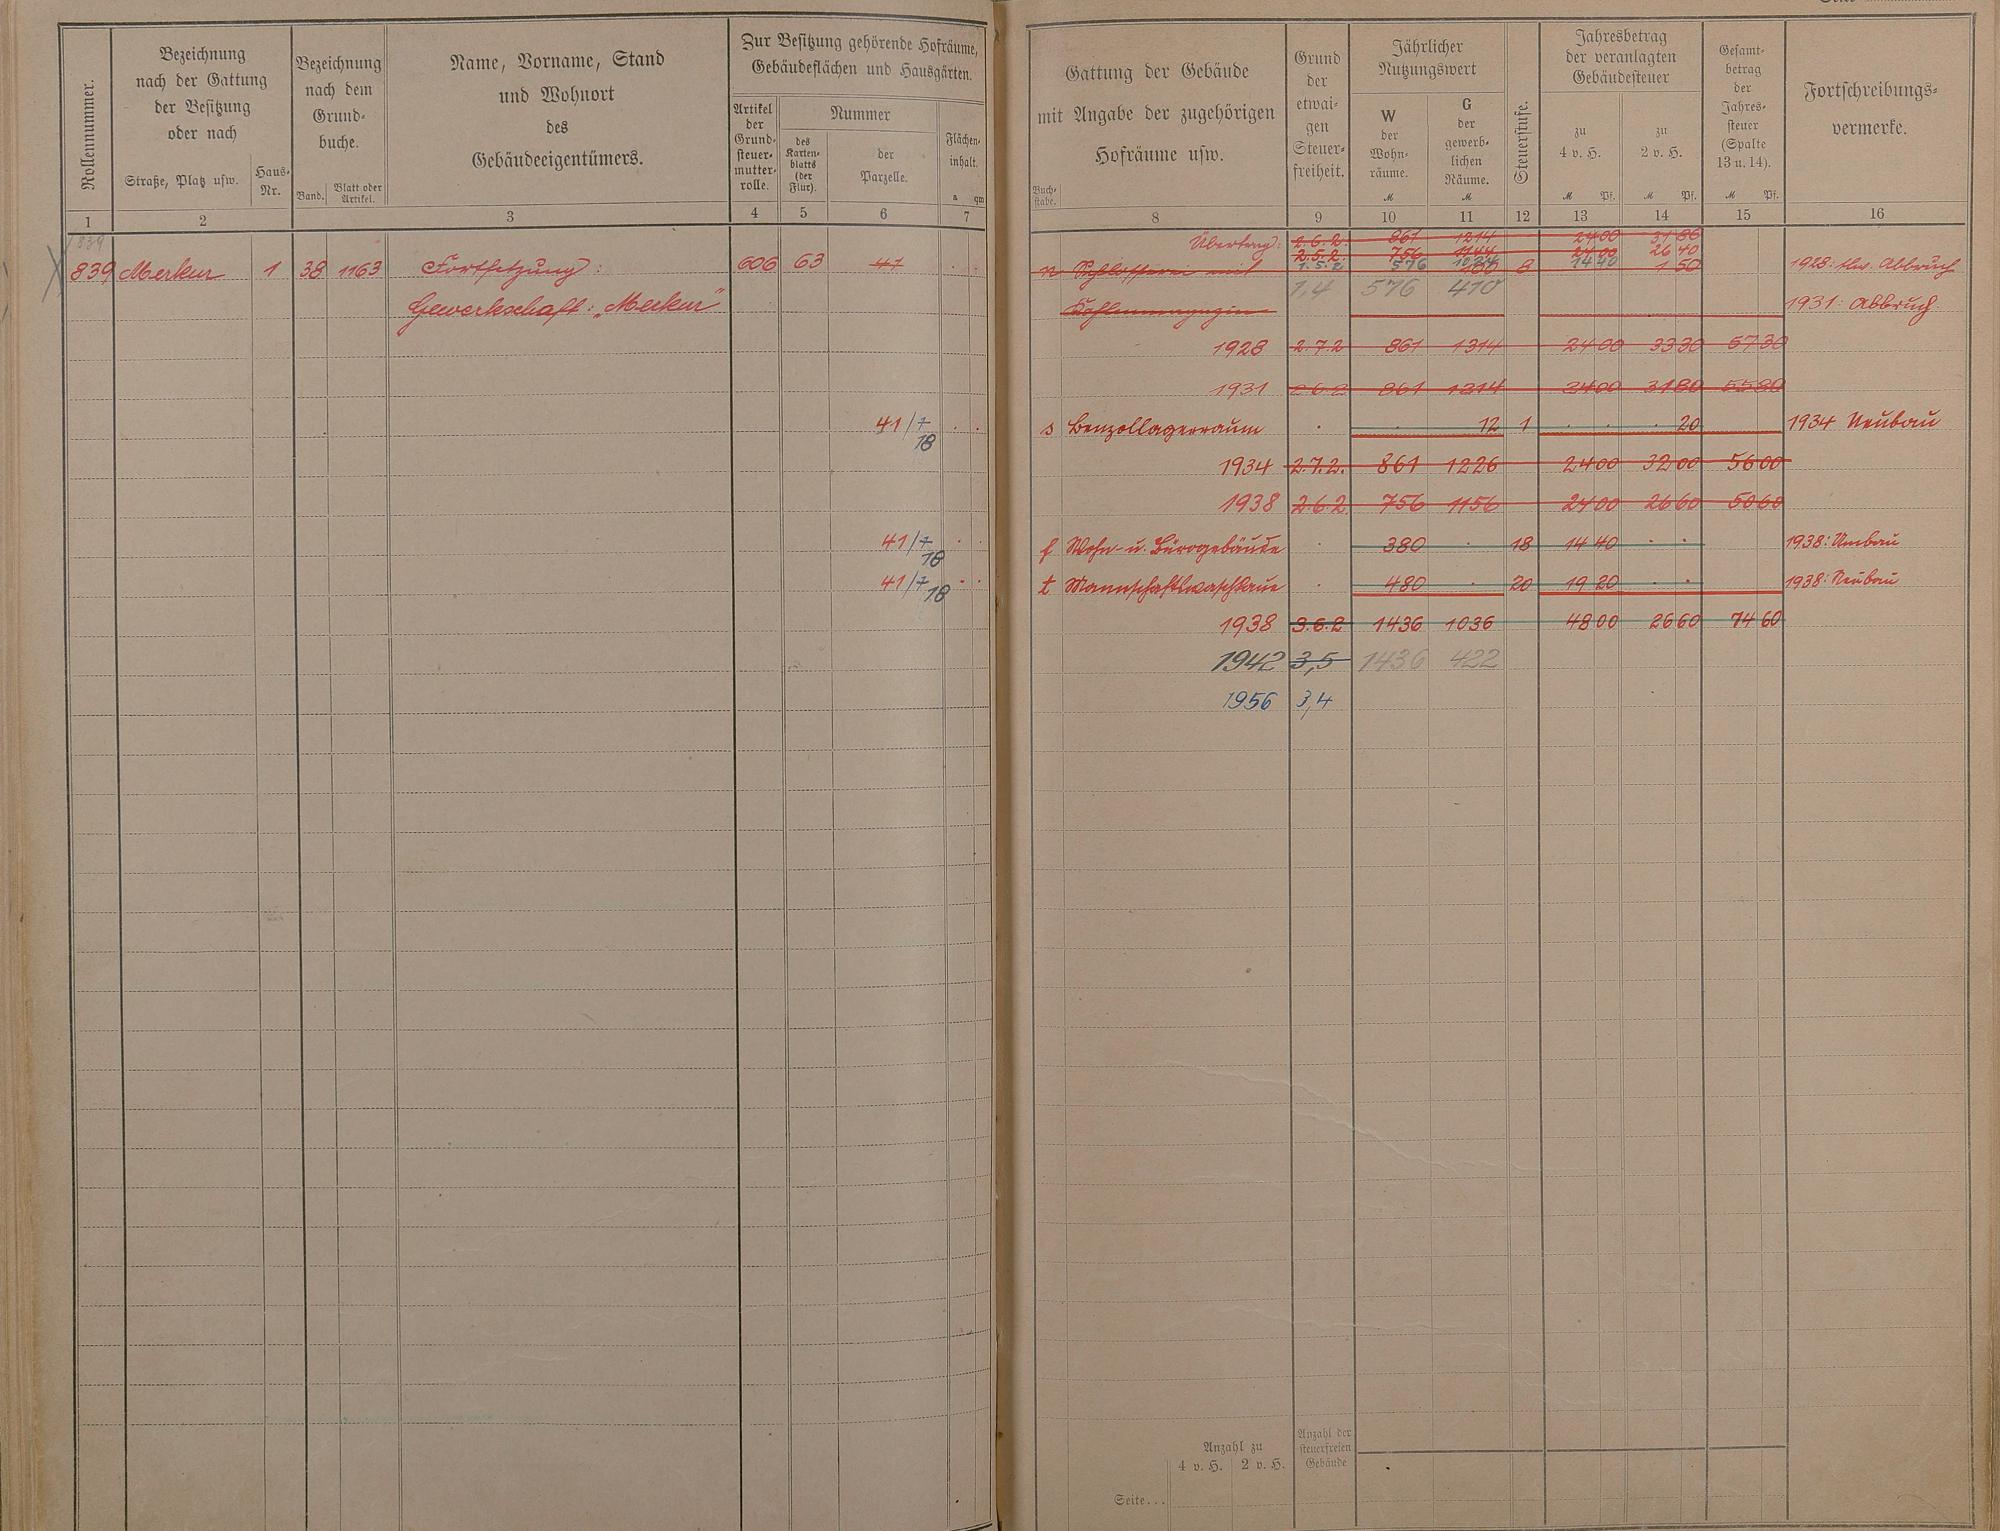 Rollennummer.
Bezeichnung
nach der Gattung
der Besitzung
oder nach
Straße, Platz usw.
Haus-
Nr.
Bezeichnung
nach dem
Grund-
buche.
Band.
Blatt oder
Artikel.
Name, Vorname, Stand
und Wohnort
des
Gebäudeeigentümers.
Zur Besitzung gehörende Hofräume,
Gebäudeflächen und Hausgärten.
Artikel
der
Grund-
steuer-
mutter-
rolle.
Nummer
des
Karten-
blatts
(der
Flur).
der
Parzelle.
Flächen-
inhalt.
a qm
1 2 3 4 5 6 7
839
839 Merkur 1 38 1163 Fortsetzung: 606 63 47
Gewerkschaft: „Merkur"
41/7
18
41/7
18
41/7
18
Gattung der Gebäude
mit Angabe der zugehörigen
Hofräume usw.
Buch-
stabe.
Grund
der
etwai-
gen
Steuer-
freiheit.
Jährlicher
Nutzungswert
W
der
Wohn-
räume.
M
G
der
gewerb-
lichen
Räume.
M
Steuerstufe.
Jahresbetrag
der veranlagten
Gebäudesteuer
zu
4 v. H.
M Pf.
zu
2 v. H.
M Pf.
Gesamt-
betrag
der
Jahres-
steuer
(Spalte
13 u. 14).
M Pf.
Fortschreibungs-
vermerke.
8 9 10 11 12 13 14 15 16
Übertrag: 2.6.2. 861 1214 2400 3180
2.5.2. 756 1144 2400 2640
1.5.2 576 1024 1440
n Schlosserei mit 100 8 1 50 1928: tlw. Abbruch
1,4 576 410
Kohlenmagazin 1931: Abbruch
1928 2.7.2 861 1314 2400 3330 5730
1931 2.6.2 861 1214 2400 3180 5580
s Benzollagerraum 12 1 20 1934 Neubau
1934 2.7.2. 861 1226 2400 3200 5600
1938 2.6.2 756 1156 2400 2660 5060
f Wohn- u. Bürogebäude 380 18 14 40 1938: Umbau
t Mannschaftswaschkaue 480 20 19 20 1938: Neubau
1938 3.6.2 1436 1036 4800 2660 7460
1942 3,5 1436 422
1956 3,4
Anzahl zu
4 v. H. 2 v. H.
Anzahl der
steuerfreien
Gebäude
Seite...